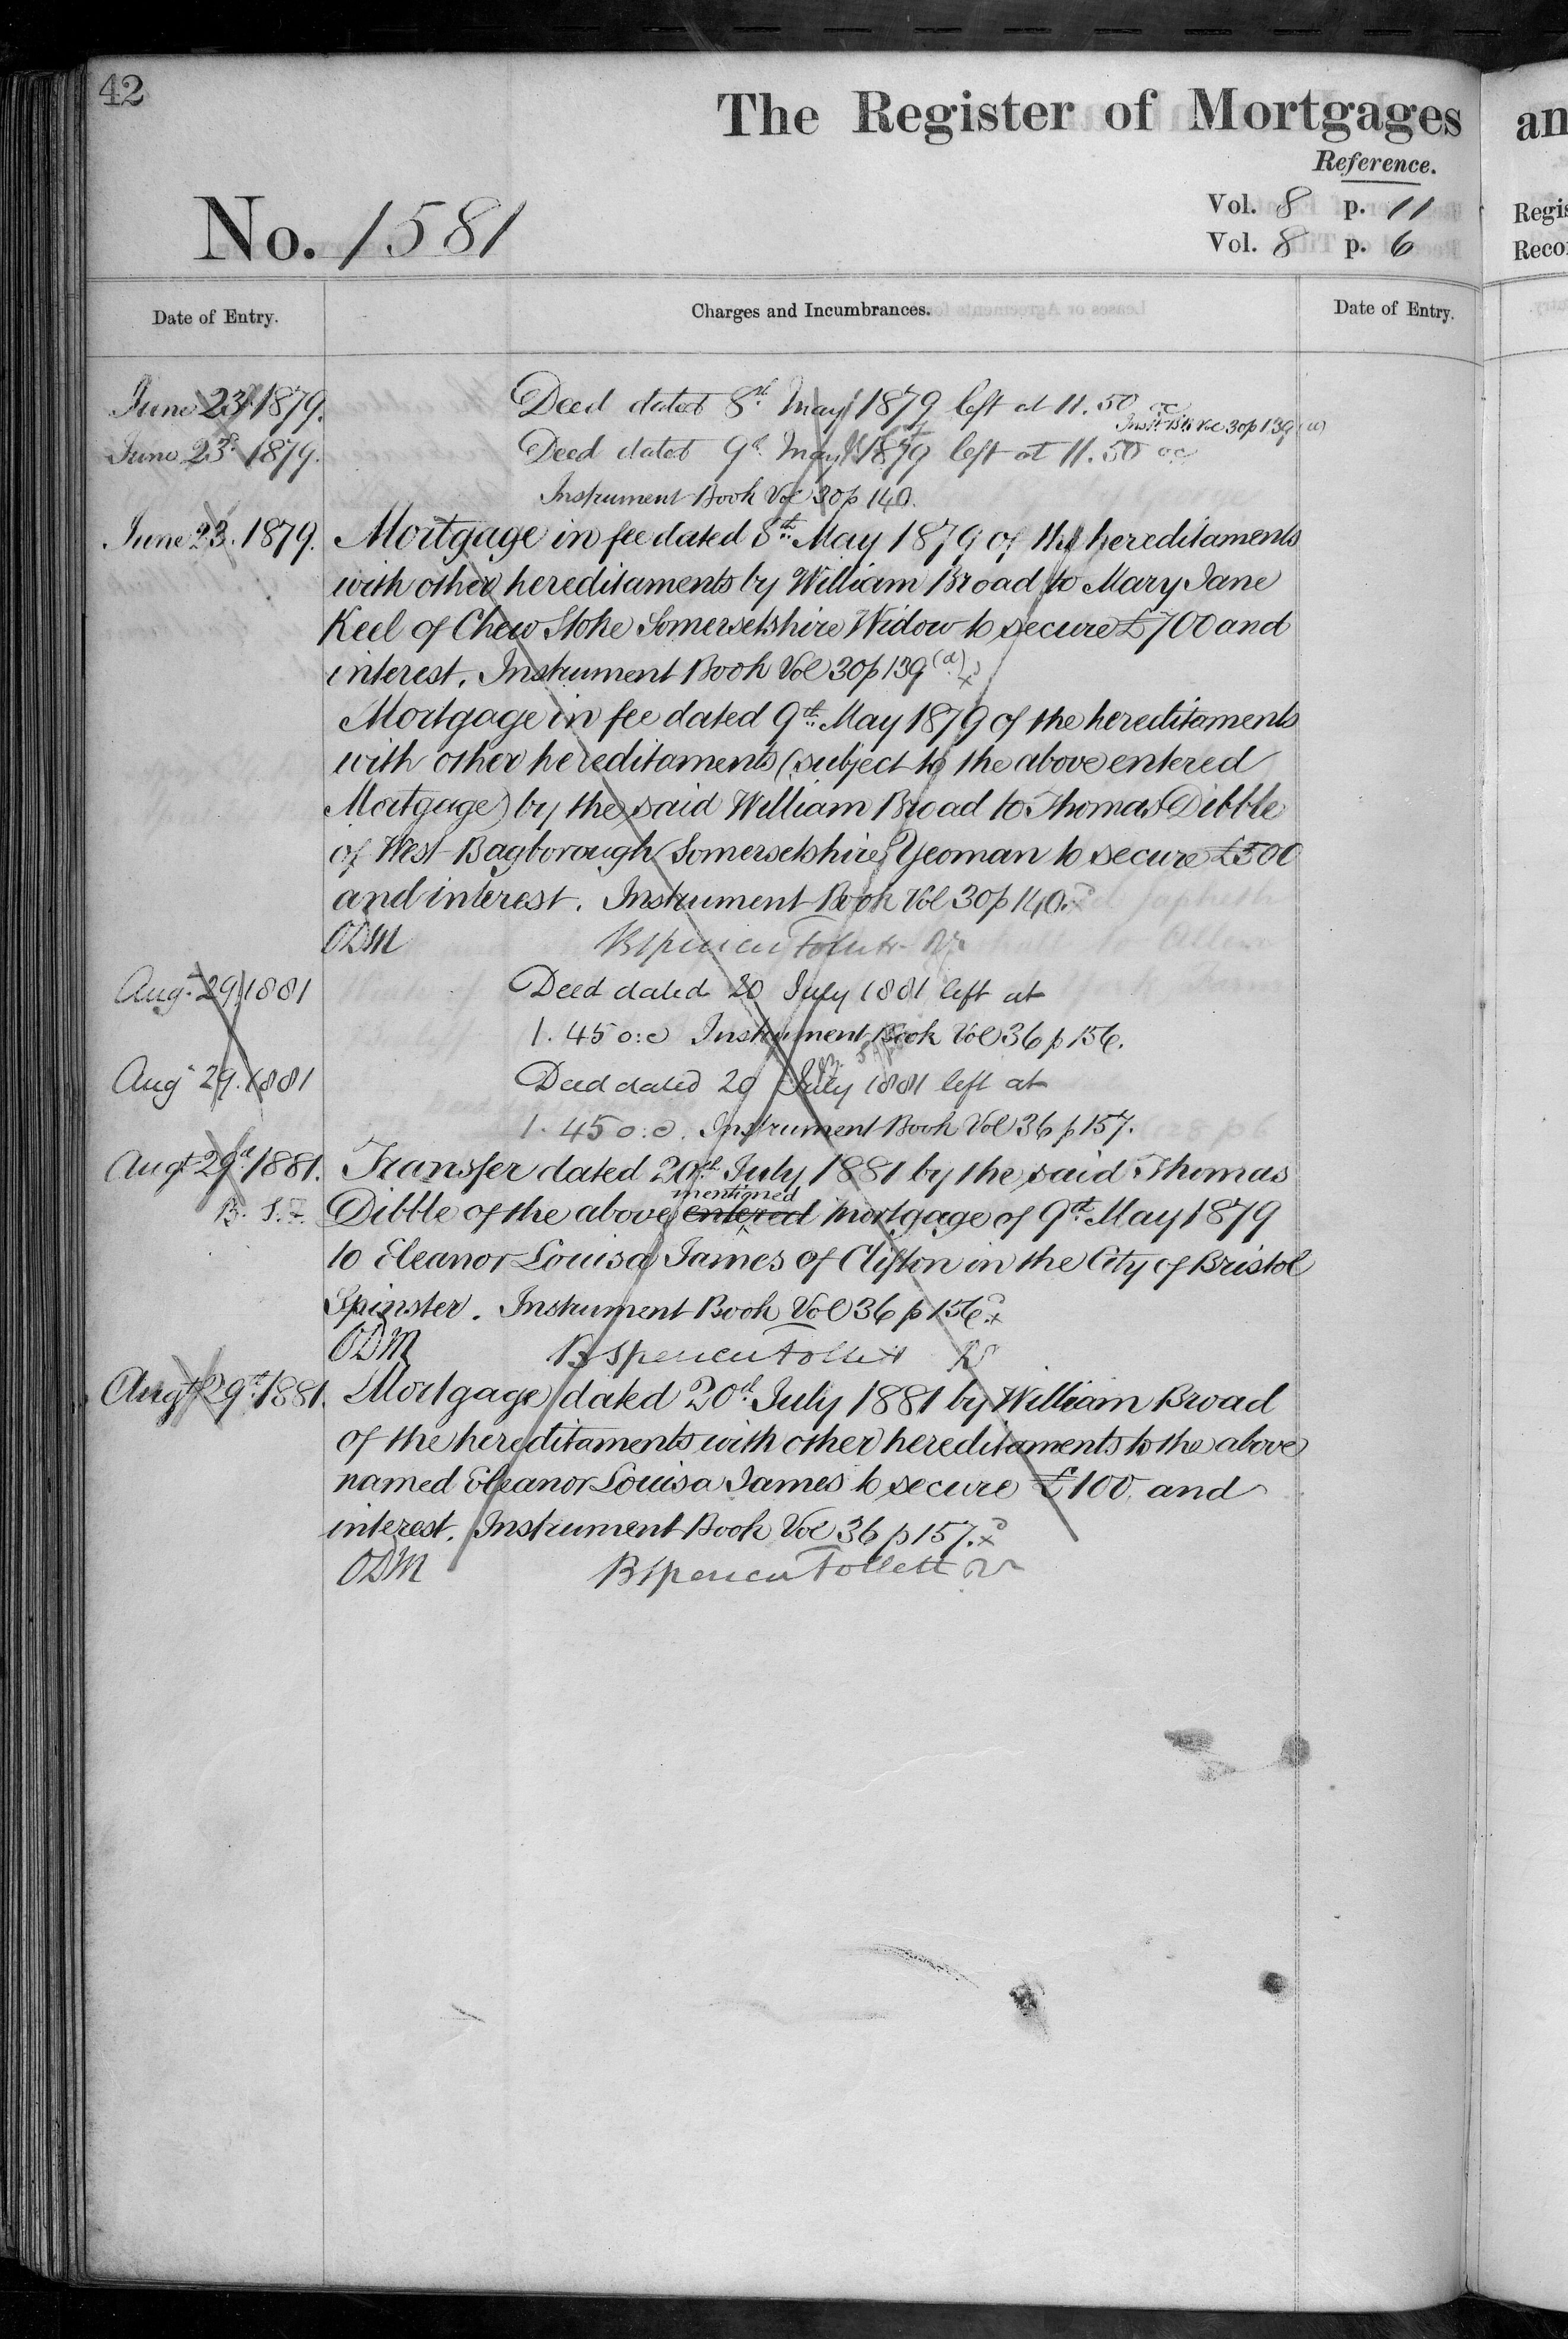 42
The Register of Mortgages
an
Reference.
No. 1581
Vol. 8 p. 11
Vol. 8 p. 6
Regis
Reco
Date of Entry.
Charges and Incumbrances.
Date of Entry.
June 23d 1879. Deed dated 8th May 1879 left at 11.50 oc
Inst Bk Vol 30 p 139 (a)
June 23d 1879. Deed dated 9th May 1879 left at 11.50 oc
Instrument Book Vol 30 p 140.
June 23. 1879. Mortgage in fee dated 8th May 1879 of the hereditaments
with other hereditaments by William Broad to Mary Jane
Keel of Chew Stoke Somersetshire Widow to secure £700 and
interest. Instrument Book Vol 30 p 139 (a)
Mortgage in fee dated 9th May 1879 of the hereditaments
with other hereditaments (subject to the above entered
Mortgage) by the said William Broad to Thomas Dibble
of West Bagborough Somersetshire Yeoman to secure £500
and interest. Instrument Book Vol 30 p 140.
ODM BSpencer Follett
Augt 29 1881 Deed dated 20 July 1881 left at
1.45 o:c Instrument Book Vol 36 p 156.
Augt 29. 1881 Deed dated 20 July 1881 left at
1.45 o:c. Instrument Book Vol 36 p 157.
Augt 29th 1881. Transfer dated 20th July 1881 by the said Thomas
mentioned
B. S. F. Dibble of the above entered mortgage of 9th May 1879
to Eleanor Louisa James of Clifton in the City of Bristol
Spinster. Instrument Book Vol 36 p 156.
ODM BSpencer Follett
Augt 29th 1881. Mortgage dated 20th July 1881 by William Broad
of the hereditaments with other hereditaments to the above
named Eleanor Louisa James to secure £100 and
interest. Instrument Book Vol 36 p 157.
ODM BSpencer Follett